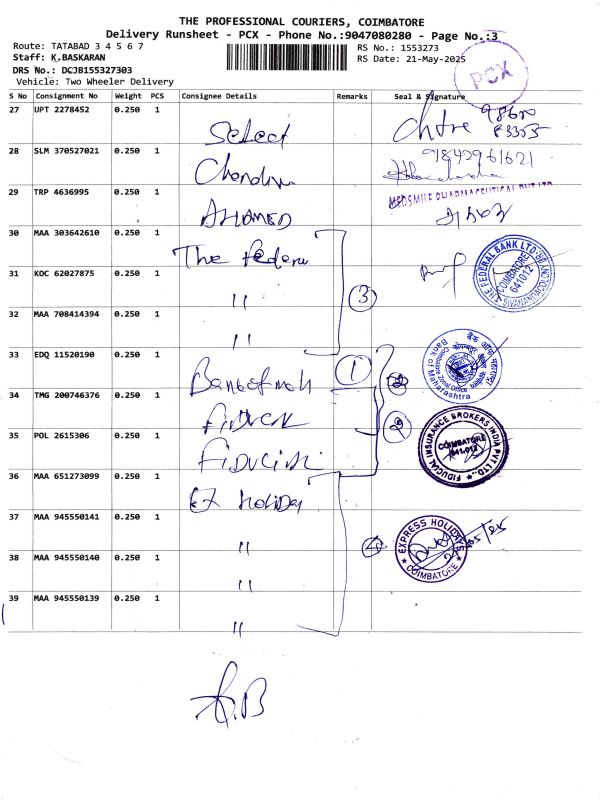 THE PROFESSIONAL COURIERS, COIMBATORE
Delivery Runsheet - PCX - Phone No.:9047080280 - Page No.:3
Route: TATABAD 3 4 5 6 7
Staff: K.BASKARAN
DRS No.: DCJB155327303
Vehicle: Two Wheeler Delivery
RS No.: 1553273
RS Date: 21-May-2025
PCX
S No Consignment No Weight PCS Consignee Details Remarks Seal & Signature
27 UPT 2278452 0.250 1 Select
28 SLM 370527021 0.250 1 9842961621
29 TRP 4636995 0.250 1 AHAMED MEDSMILE PHARMACEUTICAL PVT LTD
30 MAA 303642610 0.250 1 The Federa
THE FEDERAL BANK LTD COIMBATORE 641012 SIVANANDACOLONY
31 KOC 62027875 0.250 1 "
3
32 MAA 708414394 0.250 1 "
33 EDQ 11520190 0.250 1 Bankofmah 1
बैंक ऑफ महाराष्ट्र Bank of Maharashtra Coimbatore Zonal Office
34 TMG 200746376 0.250 1
2
35 POL 2615306 0.250 1
FIDUCIAL INSURANCE BROKERS INDIA PVT LTD., COIMBATORE 641.012
36 MAA 651273099 0.250 1 EX Holiday
37 MAA 945550141 0.250 1 "
4
EXPRESS HOLIDAYS COIMBATORE
38 MAA 945550140 0.250 1 "
39 MAA 945550139 0.250 1 "
K.B